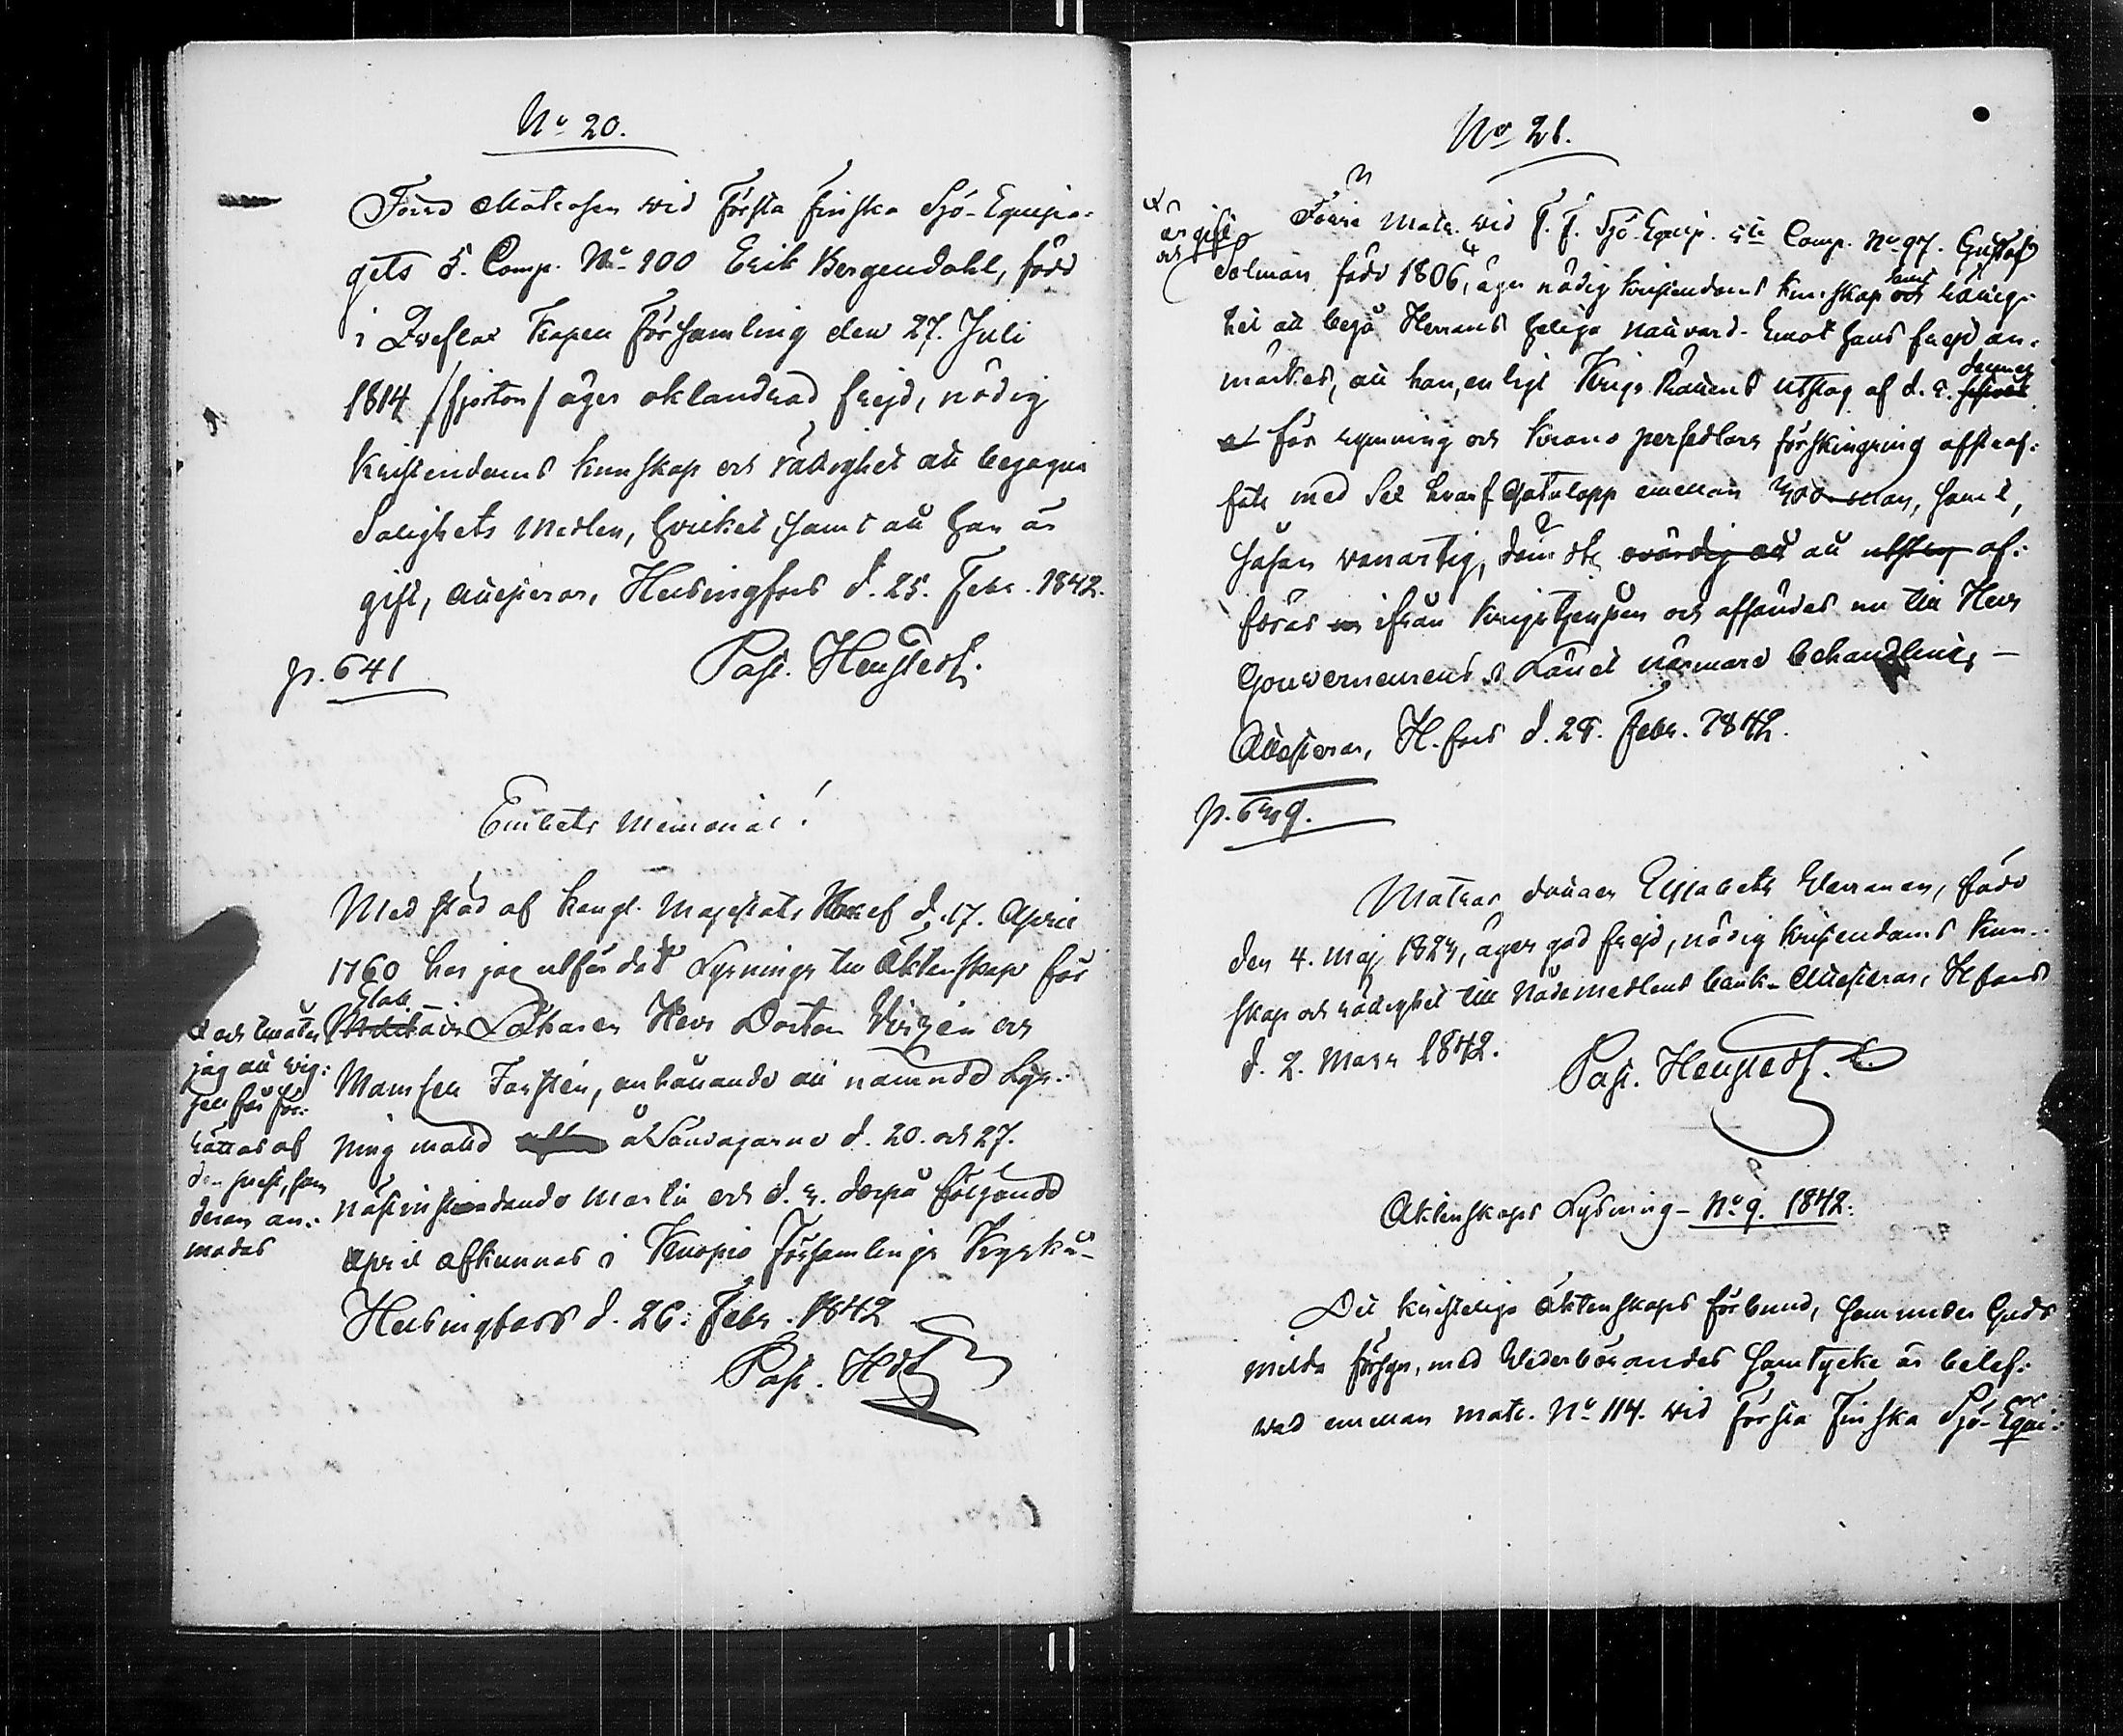 No 20.
Förra Matrosen vid Första Finska Sjö-Equipa-
gets 5. Comp. No 100 Erik Bergendahl, född
i Kapell Församling den 27. Juli
1814 /fjorton/ äger oklandrad frejd, nödig
Kristendoms kunskap och rättighet att begagna
Salighets Medlen, hvilket, samt att han är
gift, attesteras, Helsingfors d. 25. Febr. 1842.
p. 641 Past. Henstedt.
Embets Memorial!
Med stöd af Kongl. Majestäts Bref d. 17. April
1760 har jag utfärdat Lysnings till Äktenskap för
Stabs
Militair Läkaren Herr Doctor Virzén och
Mamsell Forstén, anhållande att nämnde Lys-
ning måtte å Söndagarne d. 20. och 27.
nästinstundande Martii och d. 3. derpå följande
April afkunnas i Kuopio Församlings Kyrka-
Helsingfors d. 26. Febr. 1842
Past. Hdt
och tillåter
jag att vig-
seln får för-
rättas af
den prest, som
derom an-
modas
No 21.
är gift
och
Förra Matr. vid F. F. Sjö-Equip. 5te Comp. No 97. Gustaf
Solman född 1806, äger nödig kristendoms kunskap och rättig-
samt
het att begå Herrans heliga nattvard. Emot hans frejd an-
märkes, att han, enligt Krigs Rättens utslag af d. 5. dennes
för rymning och Krono persedlars förskingring afstraf-
fats med sex hvarf Gatulopp emellan 300 man, samt,
såsom vanartig, dömd ovärdig att att utslag af-
föras ifrån krigstjensten och afsändes nu till Herr
Gouverneurens i Länet närmare behandling, -
Attesteras, H.fors d. 28. Febr. 1842.
p. 639.
Matros dottren Elisabeth Werranen, född
den 4. Maj 1823, äger god frejd, nödig kristendoms kun-
skap och rättighet till Nådemedlens bruk. Attesteras, Hfors
d. 2. Mars 1842. Past. Henstedt.
Aktenskaps Lysning - No 9. 1842.
Det kristeliga äktenskaps förbund, som under Guds
milda försyn, med Wederbörandes samtycke är belef-
vad emellan matr. No 114. vid Första Finska Sjö-Equi-